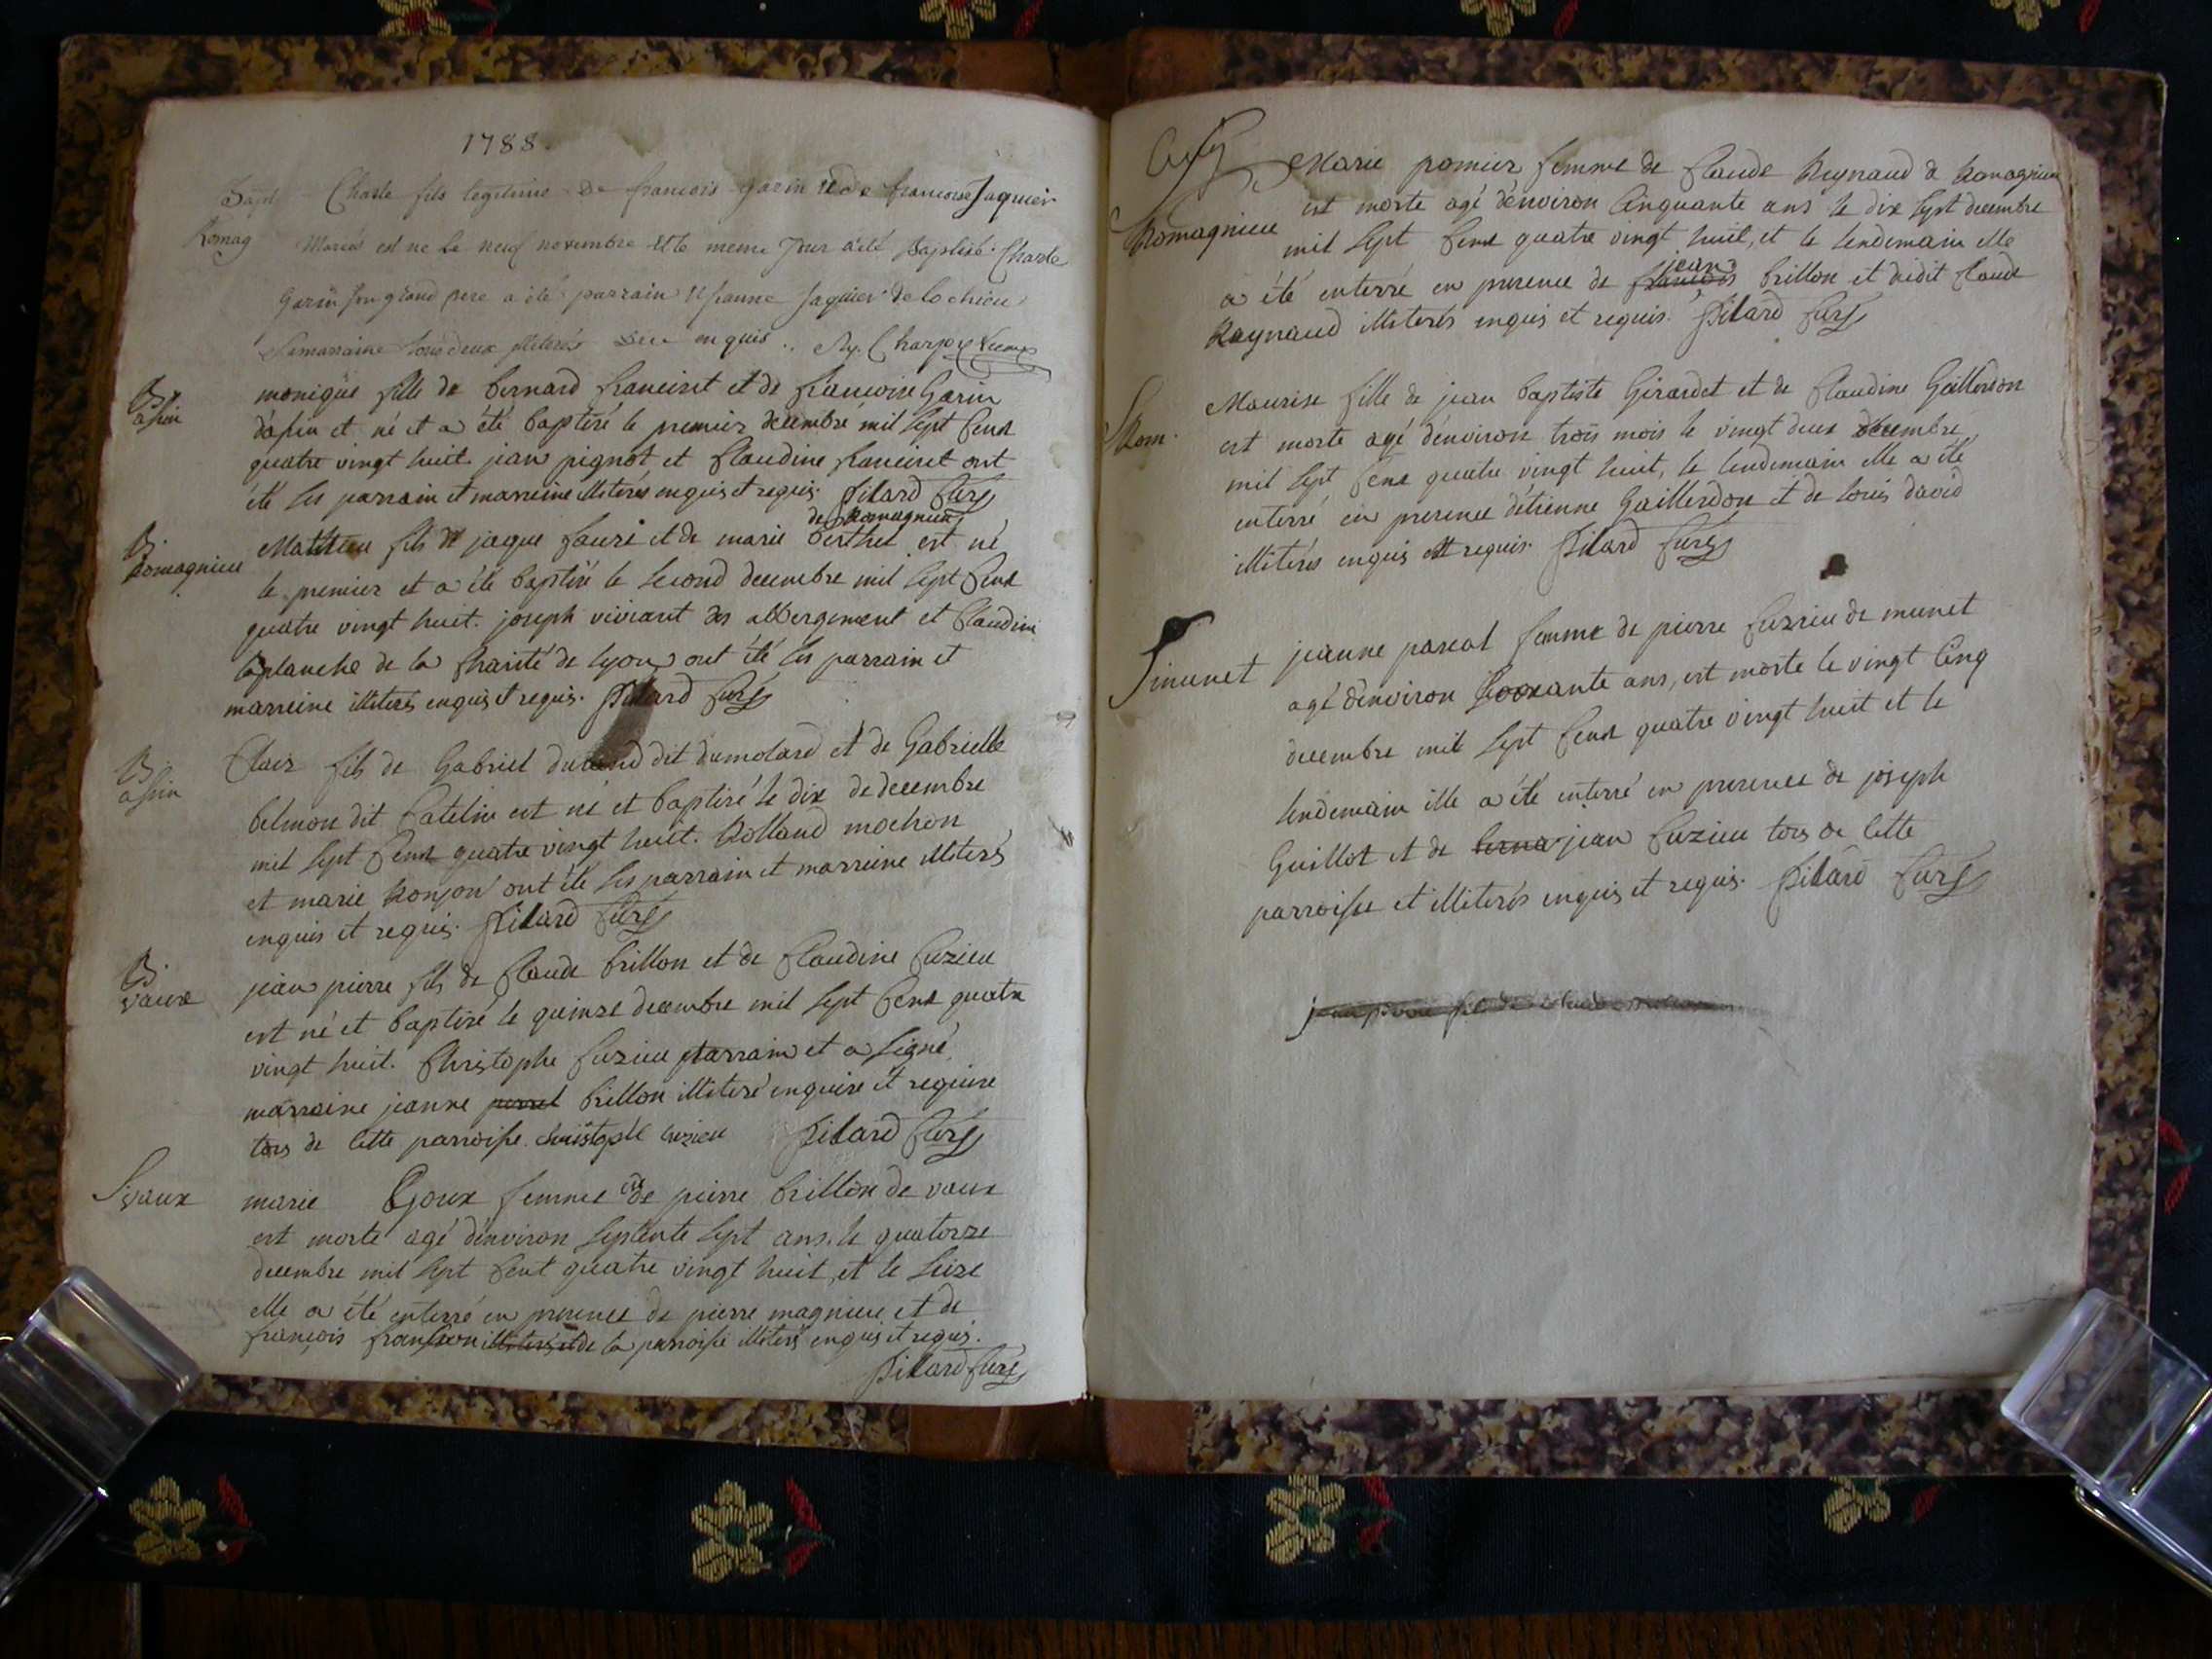 1788.
Bapt Charle fils legitime de francois garin et de francoise Jaquier
Romag Mariés est ne le neuf novembre et le meme Jour a été Baptisé. Charle
Garin son grand pere a été parrain et jeanne Jaquier
Sa marraine tous deux illiterés enquis
B. monique fille de bernard francinet et de francoise Garin
d'asin et né et a été baptisé le premier decembre mil sept cent
quatre vingt huit. jean pignot et Claudine francinet ont
été les parrain et marreine illiterés enquis et requis. Pitard Curé
de Romagnieu
B. Mathieu fils de jaque faure et de marie berthet est né
Romagnieu le premier et a été baptisé le second decembre mil sept cent
quatre vingt huit. joseph viviant des abbergement et Claudine
laplanche de la Charité de lyon ont été les parrain et
marreine illiterés enquis et requis. Pitard Curé
B. Clair fils de Gabriel durand dit dumolard et de Gabrielle
belmon dit Catelin est né et baptisé le dix de decembre
mil sept cent quatre vingt huit. Rolland mochon
et marie Ronjon ont été les parrain et marreine illiterés
enquis et requis. Pitard Curé
B. jean pierre fils de Claude brillon et de Claudine Cuzieu
vaux est né et baptisé le quinze decembre mil sept cent quatre
vingt huit. Christophe Cuzieu parrain et a signé,
marraine jeanne brillon illiteré enquise et requise
tous de cette parroisse. christophe cuzieu Pitard Curé
S. vaux marie Goux femme de pierre brillon de vaux
est morte agé d'environ septente sept ans. le quatorze
decembre mil sept cent quatre vingt huit, et le seize
elle a été enterré en presence de pierre magnieu et de
françois de la parroisse illiterés enquis et requis.
Pitard Curé
Marie pomier femme de Claude Reynaud de Romagnieu
Romagnieu est morte agé d'environ Cinquante ans le dix sept decembre
mil sept cent quatre vingt huit, et le lendemain elle
jean
a été enterré en presence de francois brillon et dudit Claude
Raynaud illiterés enquis et requis. Pitard Curé
S Rom. Maurise fille de jean baptiste Girardet et de Claudine Gaillerdon
est morte agé d'environ trois mois le vingt deux decembre
mil sept cent quatre vingt huit, le lendemain elle a été
enterré en presence d'etienne Gaillerdon et de louis david
illiterés enquis et requis. Pitard Curé
S munet jeanne pascal femme de pierre Cuzieu de munet
agé d'environ soixante ans, est morte le vingt Cinq
decembre mil sept cent quatre vingt huit et le
lendemain elle a été enterré en presence de joseph
Guillot et de jean Cuzieu tous de cette
parroisse et illiterés enquis et requis. Pitard Curé